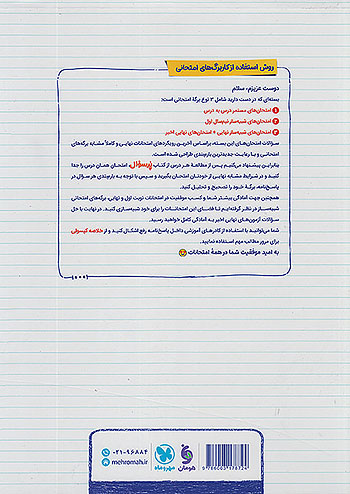 روش استفاده از کاربرگ‌های امتحانی
دوست عزیزم، سلام
بسته‌ای که در دست دارید شامل ۳ نوع برگهٔ امتحانی است:
۱ امتحان‌های مستمر درس به درس
۲ امتحان‌های شبه‌ساز نیم‌سال اول
۳ امتحان‌های شبه‌ساز نهایی + امتحان‌های نهایی اخیر
سؤالات امتحان‌های این بسته، براساس آخرین رویکردهای امتحانات نهایی و کاملاً مشابه برگه‌های
امتحانی و با رعایت جدیدترین بارم‌بندی طراحی شده است.
بنابراین پیشنهاد می‌کنیم پس از مطالعهٔ هر درس از کتاب پُرسؤال، امتحان همان درس را جدا
کنید و در شرایط مشابه نهایی از خودتان امتحان بگیرید و سپس با توجه به بارم‌بندی هر سؤال در
پاسخ‌نامه، برگهٔ خود را تصحیح و تحلیل کنید.
همچنین جهت آمادگی بیشتر شما و کسب موفقیت در امتحانات نوبت اول و نهایی، برگه‌های امتحانی
شبه‌ساز در نظر گرفته‌ایم تا فضای این امتحانات را برای خود شبیه‌سازی کنید. در نهایت با حل
سؤالات آزمون‌های نهایی اخیر به آمادگی کامل خواهید رسید.
شما می‌توانید با استفاده از کادرهای آموزشی داخل پاسخ‌نامه رفع اشکال کنید و از خلاصه کپسولی
برای مرور مطالب مهم استفاده نمایید.
به امید موفقیت شما در همهٔ امتحانات
۰۲۱-۹۶۸۸۴
mehromah.ir
مهروماه
شومان
9786003178724